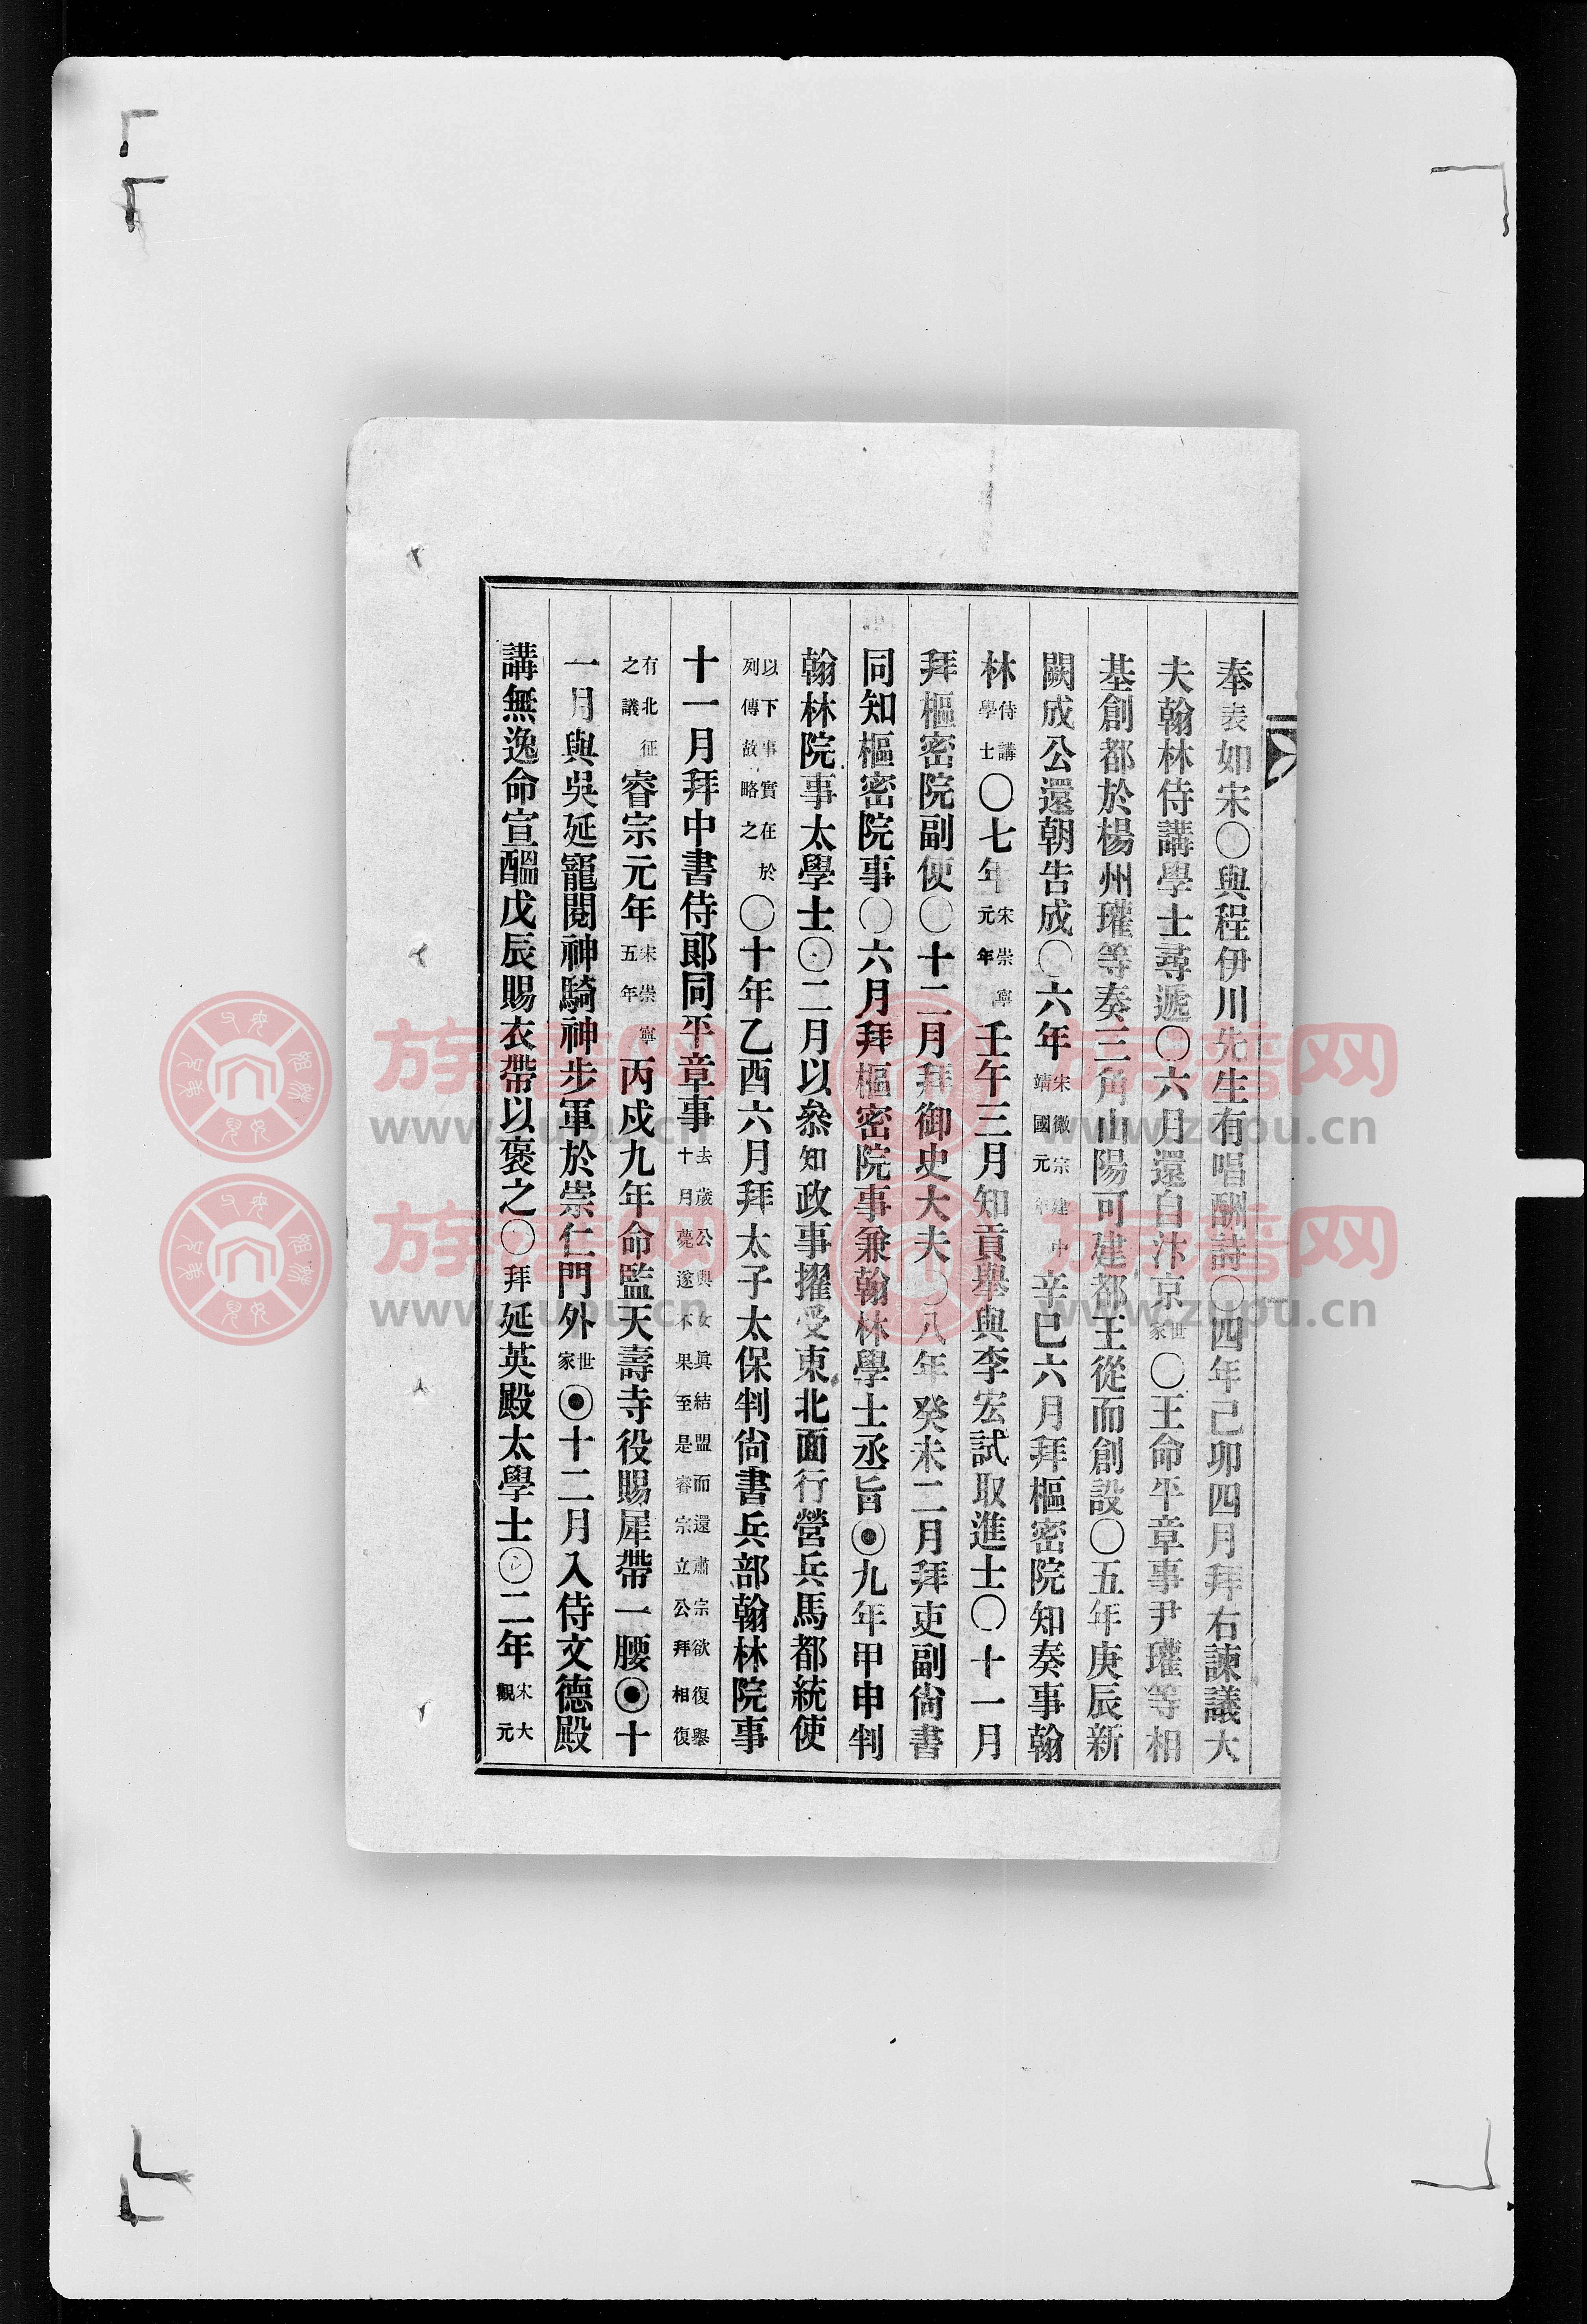 奉表如宋〇與程伊川先生有唱酬詩〇四年己卯四月拜右諫議大
夫翰林侍講學士尋遞〇六月還自汴京世家〇王命平章事尹瓘等相
基創都於楊州瓘等奏三角山陽可建都王從而創設〇五年庚辰新
闕成公還朝告成〇六年宋徽宗建中靖國元年辛巳六月拜樞密院知奏事翰
林侍講學士〇七年宋崇寧元年壬午三月知貢舉與李宏試取進士〇十一月
拜樞密院副使〇十二月拜御史大夫〇八年癸未二月拜吏副尙書
同知樞密院事〇六月拜樞密院事兼翰林學士丞旨◉九年甲申判
翰林院事太學士〇二月以叅知政事擢受東北面行營兵馬都統使
以下事實在於列傳故略之〇十年乙酉六月拜太子太保判尙書兵部翰林院事
十一月拜中書侍郞同平章事去歲公與女眞結盟而還肅宗欲復擧十月薨遂不果至是睿宗立公拜相復
有北征之議睿宗元年宋崇寧五年丙戌九年命監天壽寺役賜犀帶一腰◉十
一月與吳延寵閱神騎神步軍於崇仁門外世家◉十二月入侍文德殿
講無逸命宣醞戊辰賜衣帶以褒之〇拜延英殿太學士〇二年宋大觀元
族譜网
www.zupu.cn
族譜网
www.zupu.cn
族譜网
www.zupu.cn
族譜网
www.zupu.cn